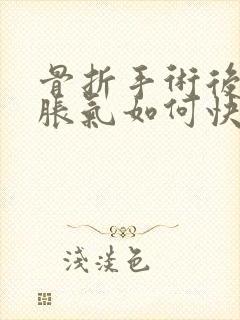 骨折手術後
脹氣如何快
淺淡色